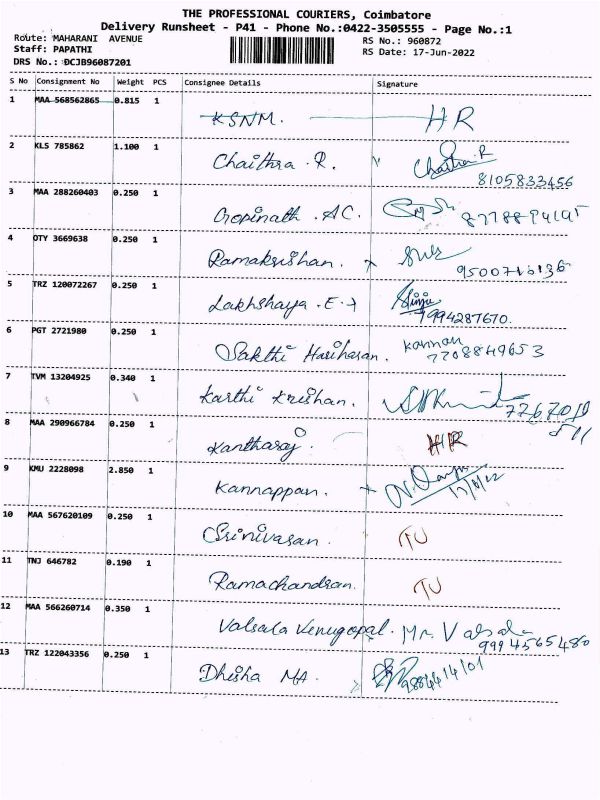 THE PROFESSIONAL COURIERS, Coimbatore
Delivery Runsheet - P41 - Phone No.:0422-3505555 - Page No.:1
Route: MAHARANI AVENUE
RS No.: 960872
Staff: PAPATHI
RS Date: 17-Jun-2022
DRS No.: DCJB96087201
S No Consignment No Weight PCS Consignee Details Signature
1 MAA 568562865 0.815 1 KSNM. HR
2 KLS 785862 1.100 1 Chaithra .R. Chaithra.R
8105833456
3 MAA 288260403 0.250 1 Gopinath .AC.
4 OTY 3669638 0.250 1 Ramakrishan.
5 TRZ 120072267 0.250 1 Lakhshaya .E.
9994287670.
6 PGT 2721980 0.250 1 Sakthi Hariharan. Kannan
7708849653
7 TVM 13204925 0.340 1 Karthi Krishan.
8 MAA 290966784 0.250 1 Kantharaj. HR
9 KMU 2228098 2.850 1 Kannappan.
10 MAA 567620109 0.250 1 Srinivasan. TU
11 TNJ 646782 0.190 1 Ramachandran. TU
12 MAA 566260714 0.350 1 Valsala Venugopal. Mr. Valsala
9994565480
13 TRZ 122043356 0.250 1 Dhisha MA. 9884414101